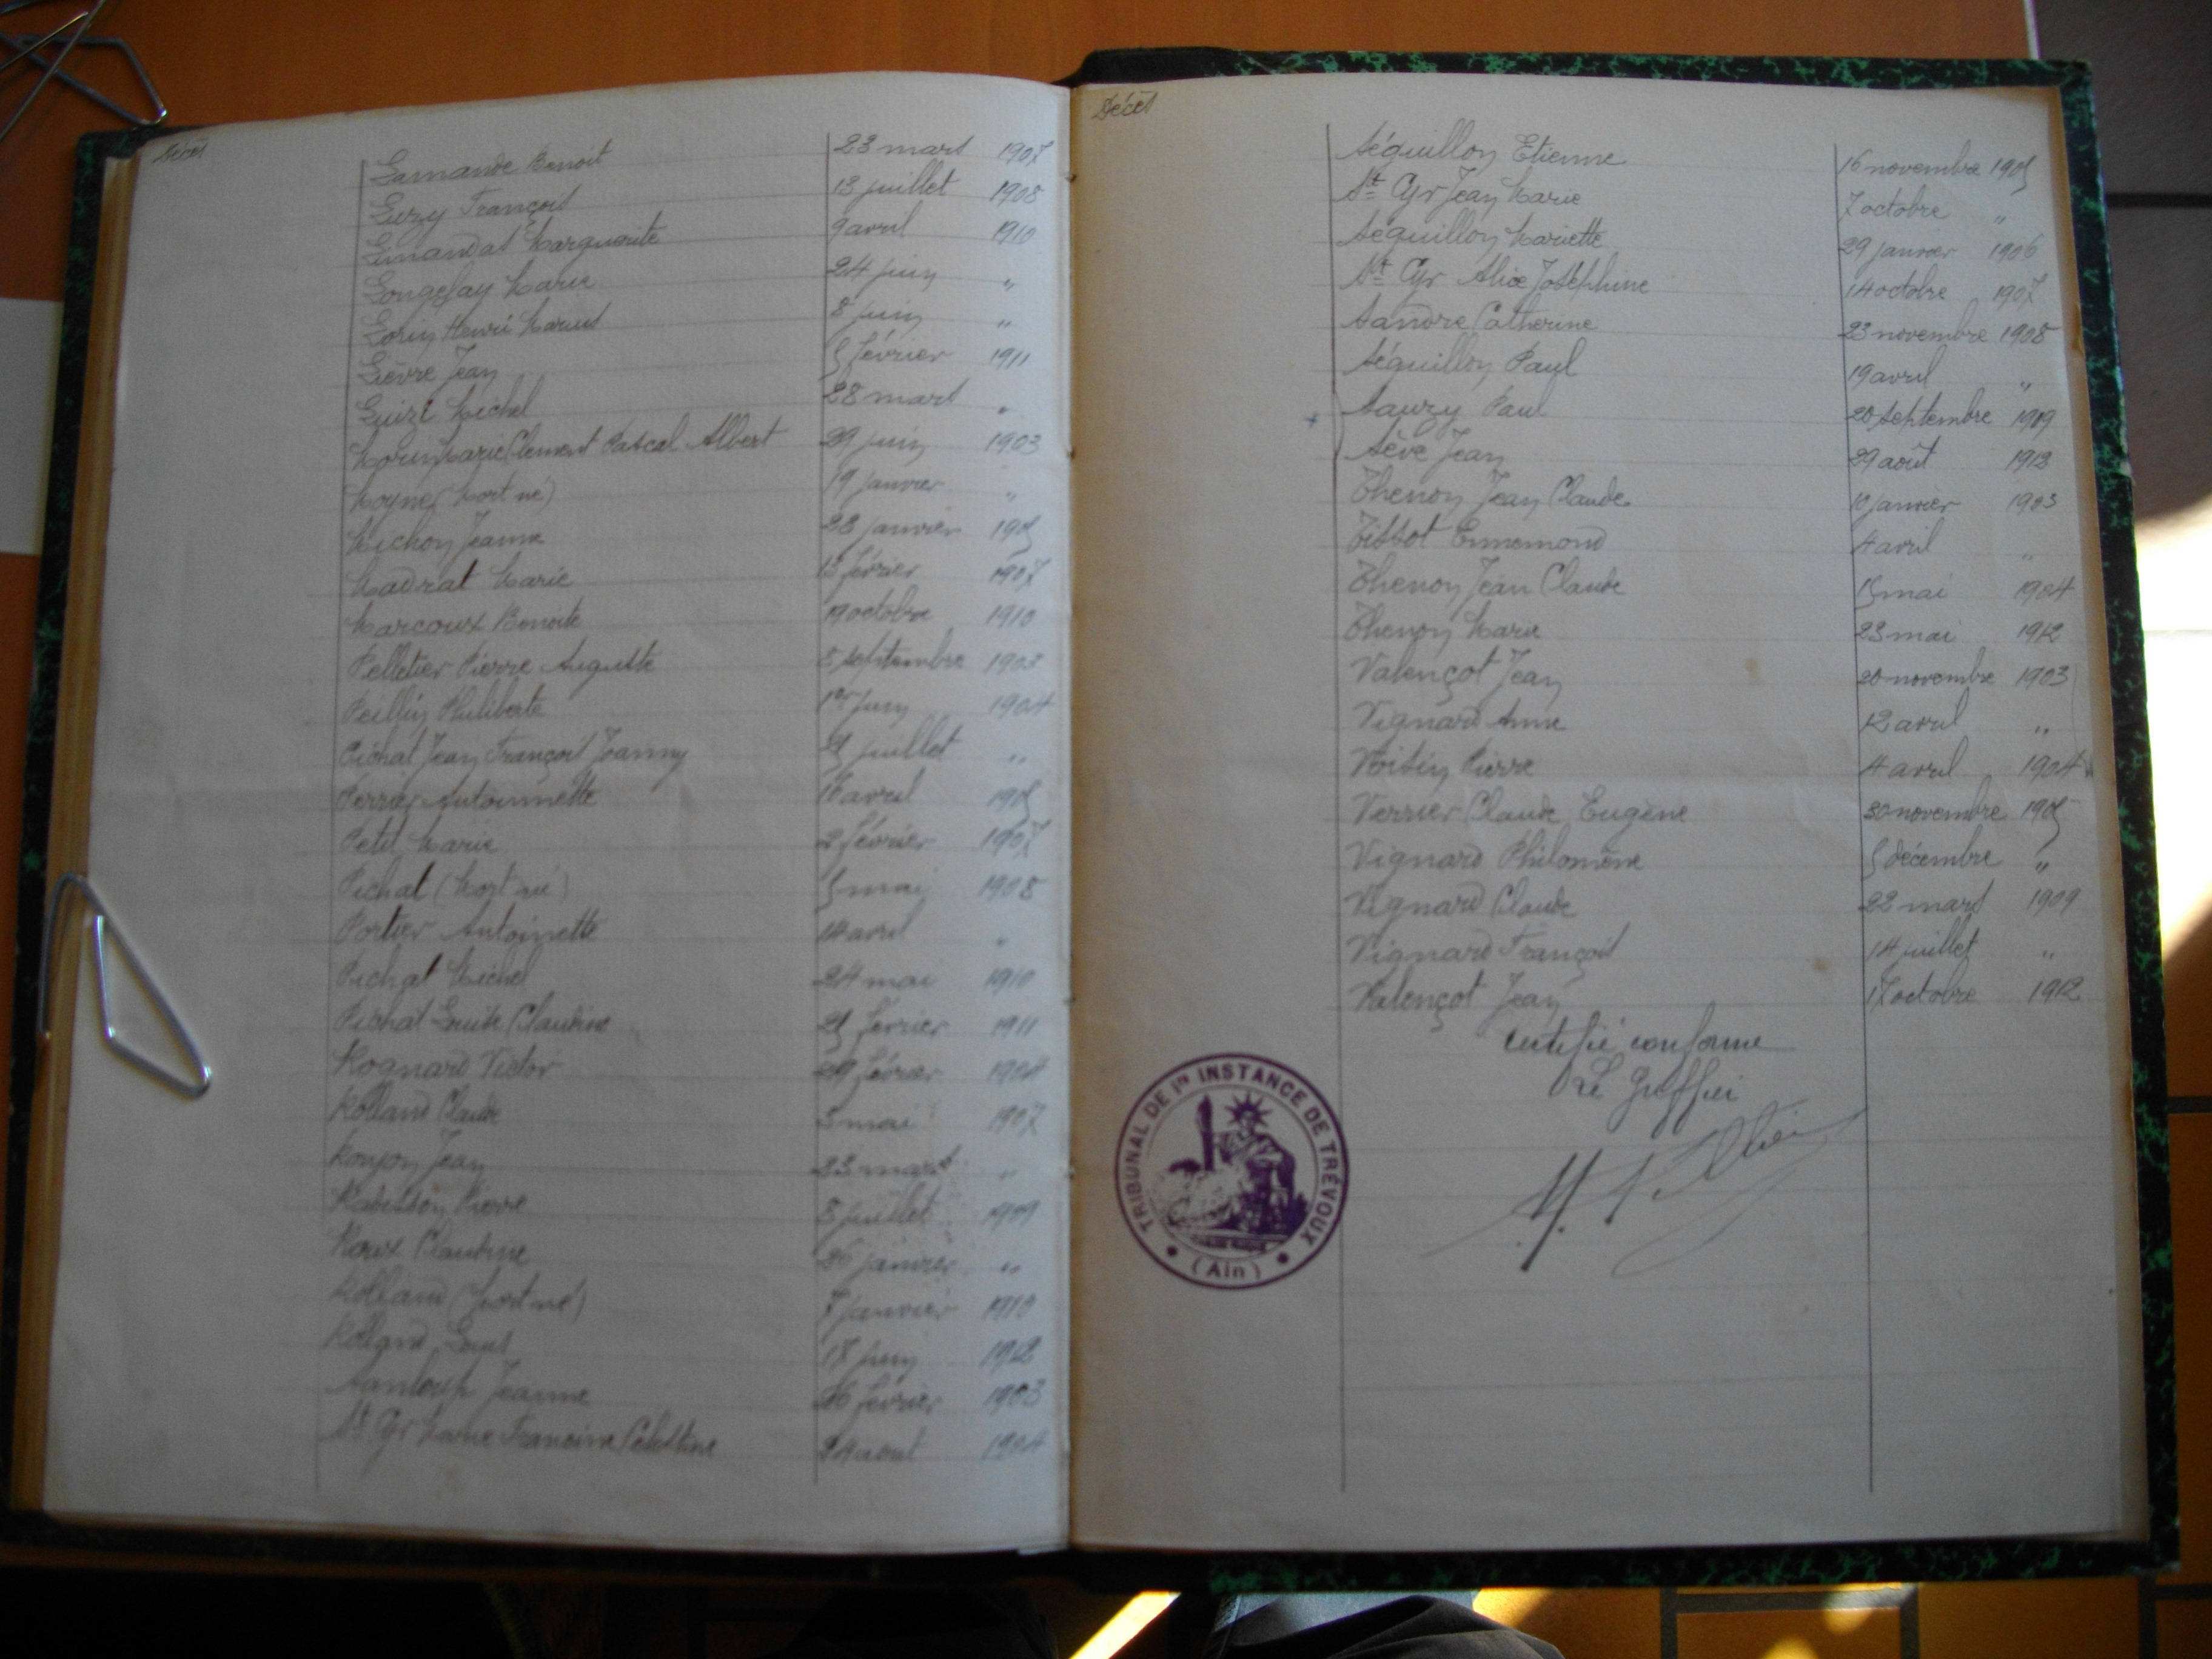 Décès
Lamande Benoit 23 mars 1907
Luzy François 13 juillet 1908
Limandas Marguerite 9 avril 1910
Longefay Marie 24 juin "
Lorin Henri Marius 8 juin "
Lièvre Jean 5 février 1911
Louis Michel 28 mars "
Morin Marie Clément Pascal Albert 29 juin 1903
Moyne (Mort né) 19 janvier "
Michon Jeanne 28 janvier 1905
Madrat Marie 13 février 1907
Marcoux Benoite 19 octobre 1910
Pelletier Pierre Auguste 8 septembre 1903
Peillon Philiberte 1er juin 1904
Pichat Jean François Joanny 21 juillet "
Perrier Antoinnette 16 avril 1905
Petit Marie 2 février 1907
Pichat (Mort né) 5 mai 1908
Portier Antoinette 14 avril "
Pichat Michel 24 mai 1910
Pichat Louise Claudine 21 février 1911
Rognard Victor 29 février 1904
Rolland Claude 3 mai 1907
Ronjon Jean 23 mars "
Pierre 8 juillet 1909
Roux Claudine 26 janvier "
Rolland (Mort né) 7 janvier 1910
Rolland Louis 17 juin 1912
Jeanne 26 février 1903
St Cyr Marie Francine Célestine 24 août 1904
Décès
Séguillon Etienne 16 novembre 1905
St Cyr Jean Marie 7 octobre "
Séguillon Mariette 29 janvier 1906
St Cyr Alice Joséphine 14 octobre 1907
Sandre Catherine 23 novembre 1908
Séguillon Paul 19 avril "
Sauzy Paul 20 septembre 1909
Sève Jean 29 août 1912
Thenon Jean Claude 10 janvier 1903
Tissot Ennemond 4 avril "
Thenon Jean Claude 15 mai 1904
Thenon Marie 23 mai 1912
Valençot Jean 20 novembre 1903
Vignard Anne 12 avril "
Voisin Pierre 4 avril 1904
Verrier Claude Eugène 30 novembre 1905
Vignard Philomène 5 décembre "
Vignard Claude 22 mars 1909
Vignard François 14 juillet "
Valençot Jean 17 octobre 1912
Certifié conforme
Le Greffier
TRIBUNAL DE 1re INSTANCE DE TRÉVOUX
(Ain)